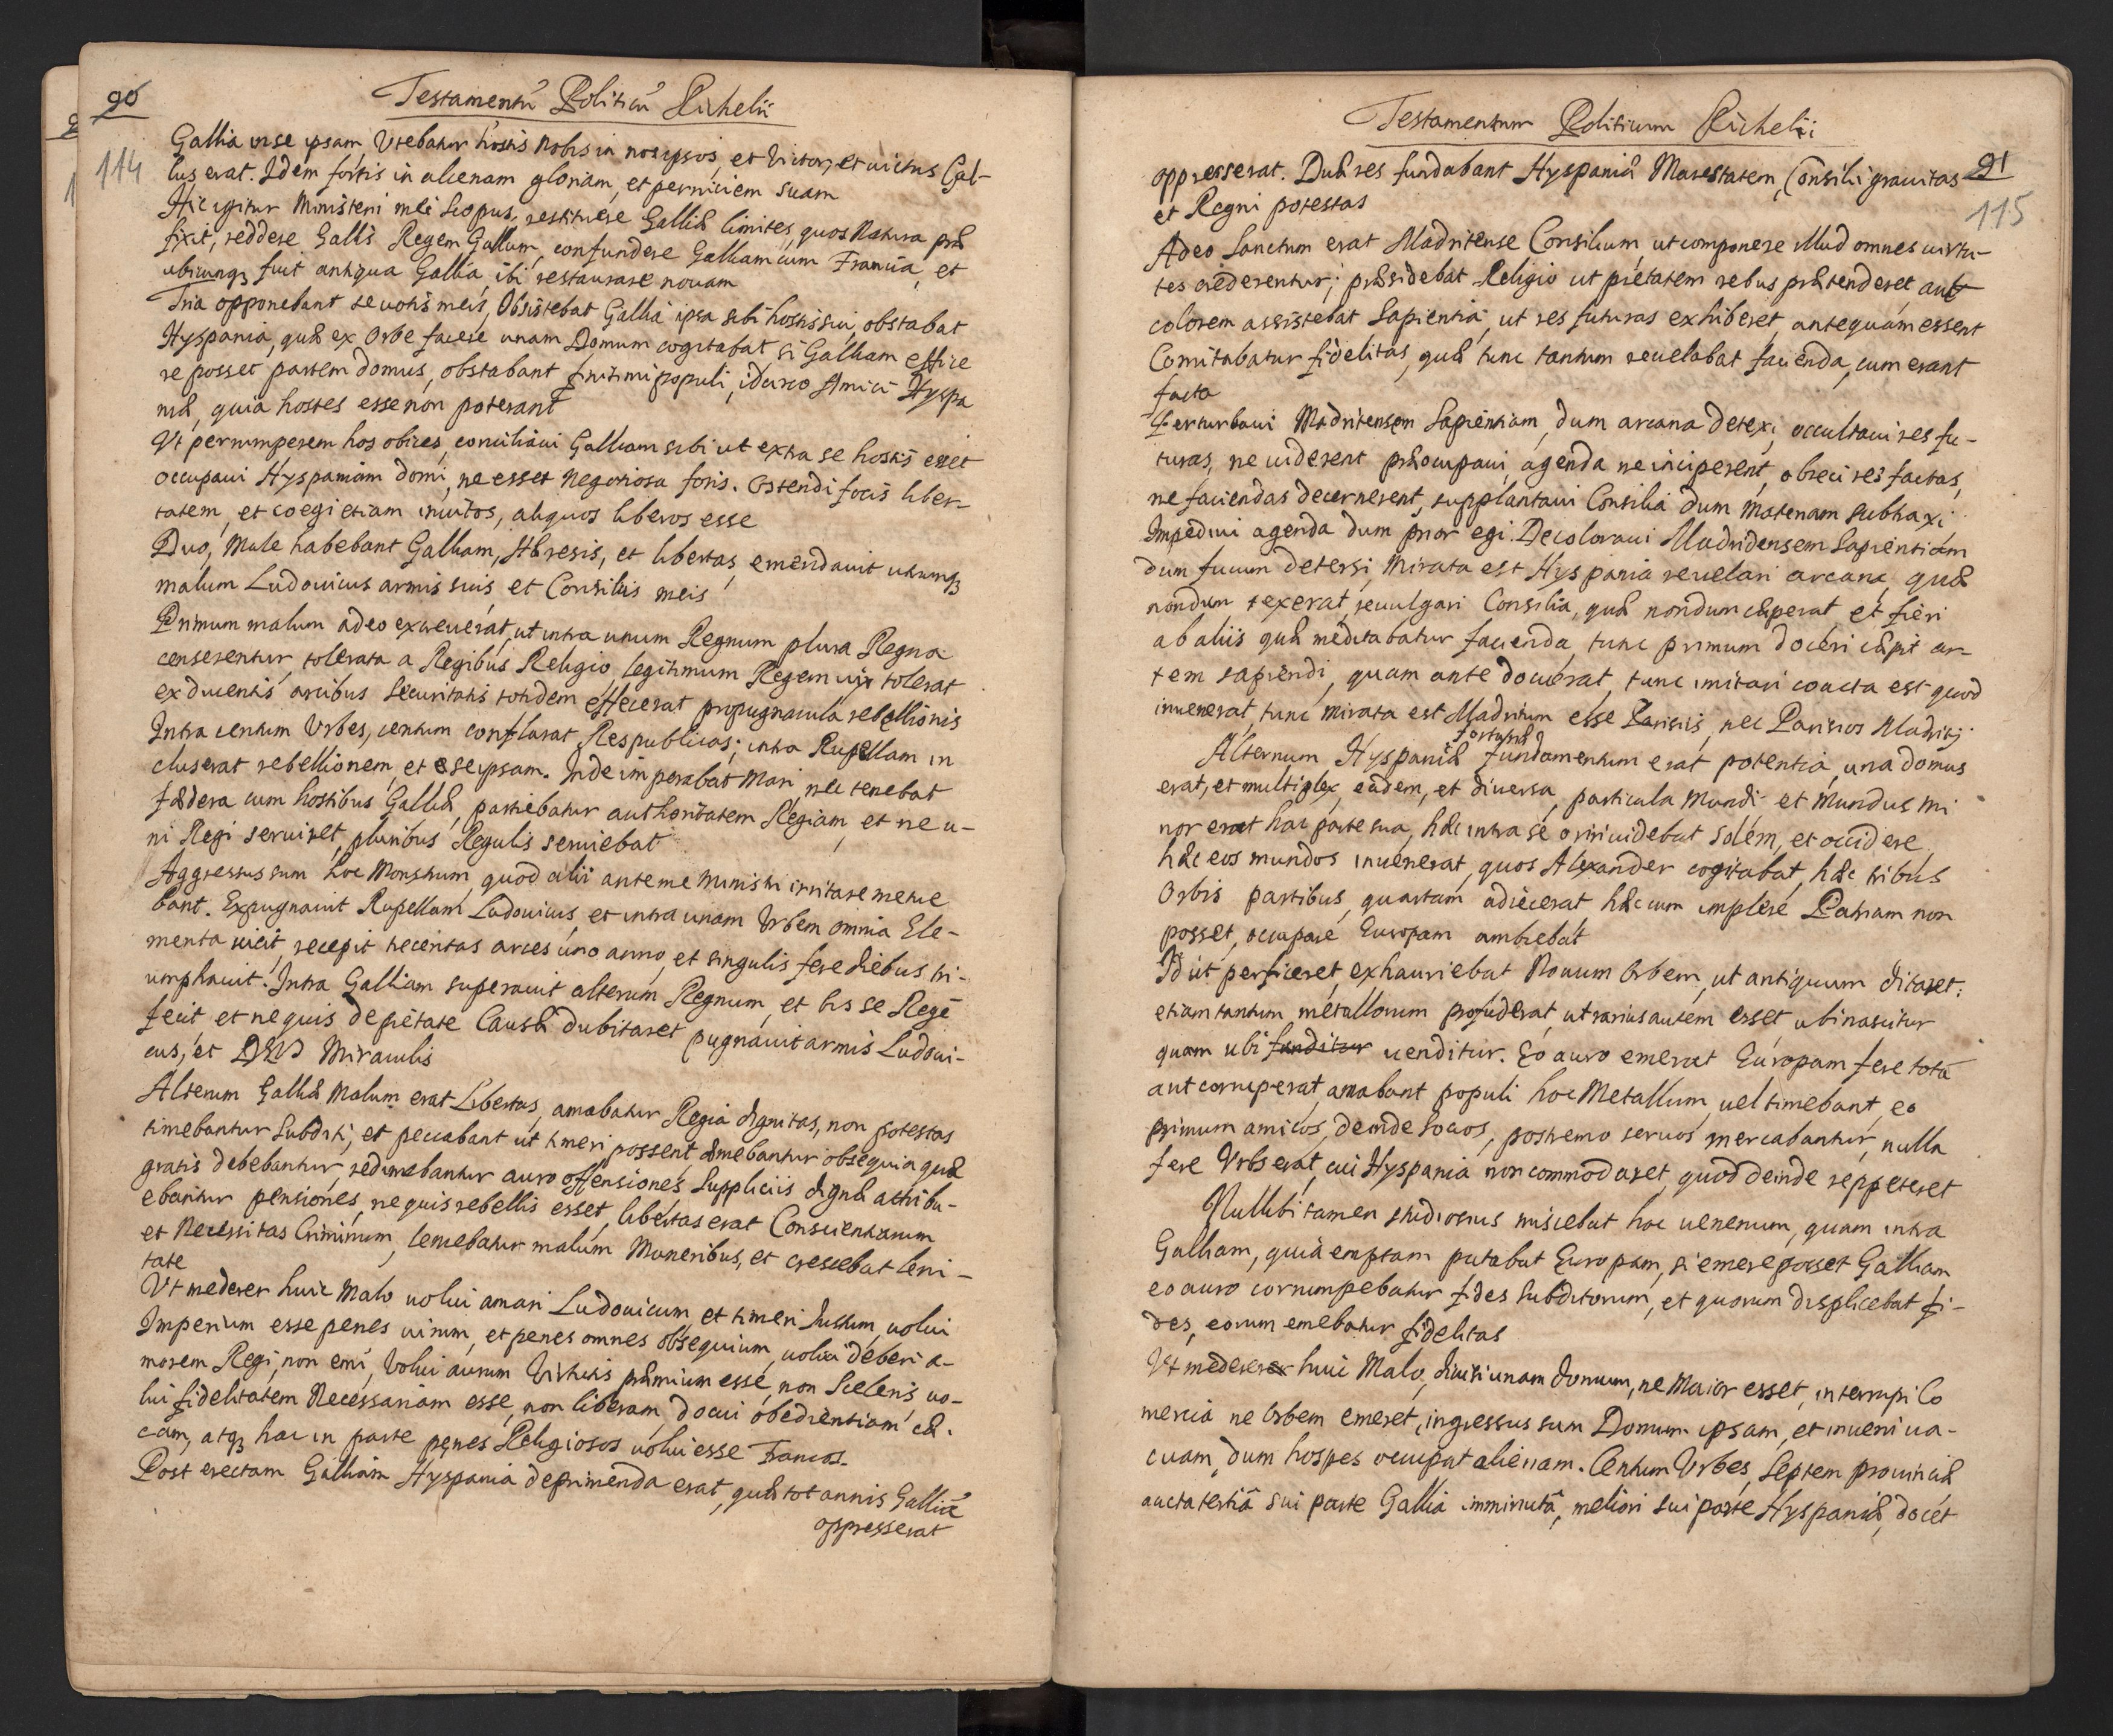 90
114
Testamentũ Politicũ Richelii
Gallia in se ipsam Vtebatur hostis nobis in nos ipsos, et Victor, et uictus Gal-
lus erat. Idem fortis in alienam gloriam, et perniciem suam
Hic igitur Ministerii mei scopus, restituere Galliæ limites, quos Natura præ
fixit, reddere Gallis Regem Gallum, confundere Galliam cum Francia, et
ubicunqȝ fuit antiqua Gallia, ibi restaurare nouam
Tria opponebant se uotis meis, Obsistebat Gallia ipsa sibi hostis sui, obstabat
Hyspania, quæ ex Orbe facere unam Domum cogitabat, si Galliam effice
re posset partem domus, obstabant finitimi populi, idcirco Amici Hyspa
niæ, quia hostes esse non poterant
Vt perrumperem hos obices, conciliaui Galliam sibi ut extra se hostis esset
occupaui Hyspaniam domi, ne esset negotiosa foris. Ostendi socis liber-
tatem, et coegi etiam inuitos, aliquos liberos esse
Duo, Male habebant Galliam, Hæresis, et libertas, emendauit utrumqȝ
malum Ludouicus armis suis et Consiliis meis
Primum malum adeo excreuerat, ut intra unum Regnum plura Regna
censerentur, tolerata a Regibus Religio, legitimum Regem uix tolerat
ex ducentis arcibus securitatis totidem effecerat propugnacula rebellionis
Intra centum Vrbes, centum conflarat Respublicas; intra Rupellam in
cluserat rebellionem, et seipsam. Inde imperabat Mari, nec tenebat
fædera cum hostibus Galliæ, partiebatur authoritatem Regiam, et ne u-
ni Regi seruiret, pluribus Regulis seruiebat
Aggressus sum hoc Monstrum, quod alii ante me Ministri irritare metue
bant. Expugnauit Rupellam Ludouicus, et intra unam Vrbem omnia Ele-
menta uicit, recepit trecentas arces uno anno, et singulis fere diebus tri-
umphauit. Intra Galliam superauit alterum Regnum, et bis se Regẽ
fecit, et ne quis de pietate Causæ dubitaret pugnauit armis Ludoui-
cus, et DEUS Miraculis
Alterum Galliæ Malum erat Libertas, amabatur Regia dignitas, non potestas
timebantur Subditi, et peccabant ut timeri possent, emebantur obsequia quæ
gratis debebantur, redimebantur auro offensiones, Suppliciis dignæ attribu-
ebantur pensiones, ne quis rebellis esset, libertas erat Conscientiarum
et Necessitas Criminum, leniebatur malum Muneribus, et crescebat leni-
tate
Vt mederer huic Malo uolui amari Ludouicum, et timeri Iustum, uolui
Imperium esse penes unum, et penes omnes obsequium, uolui deberi a-
morem Regi, non emi, Volui aurum Virtutis præmium esse, non Sceleris, uo-
lui fidelitatem Necessariam esse, non liberam, docui obedientiam cæ-
cam, atqȝ hac in parte penes Religiosos uolui esse Francos.
Post erectam Galliam Hyspania deprimenda erat, quæ tot annis Galliã
oppresserat
Testamentum Politicum Richelii
91
115
oppresserat. Duæ res fundabant Hyspaniæ Maiestatem, Consilii grauitas
et Regni potestas
Adeo Sanctum erat Madritense Consilium, ut componere illud omnes uirtu-
tes crederentur; præsidebat Religio ut pietatem rebus prætenderet, aut
colorem assistebat Sapientia, ut res futuras exhiberet, antequam essent
Comitabatur fidelitas, quæ tunc tantum reuelabat facienda, cum erant
facta
Perturbaui Madritensem Sapientiam, dum arcana detexi, occultaui res fu-
turas, ne uiderent præocupaui, agenda ne inciperent, obieci res factas,
ne faciendas decernerent, supplantaui Consilia dum materiam subtraxi
Impediui agenda dum prior egi. Decoloraui Madridensem Sapientiam
dum fucum detersi, Mirata est Hyspania reuelari arcana, quæ
nondum texerat, reuulgari Consilia, quæ nondum cæperat, et fieri
ab aliis quæ meditabatur facienda, tunc primum doceri cæpit ar-
tem sapiendi, quam ante docuerat, tunc imitari coacta est quod
inuenerat, tunc mirata est Madritum esse Parisiis, nec Parisios Madritj
fortunæ
Alternum Hyspaniæ fundamentum erat potentia, una domus
erat, et multiplex, eadem, et diuersa, particula Mundi et Mundus mi
nor erat hac parte sua, hæc intra se oriri uidebat Solem, et occidere
hæc eos mundos inuenerat, quos Alexander cogitabat, hæc tribus
Orbis partibus, quartam adiecerat, hæc cum implere Patriam non
posset, occupare Europam ambiebat
Id ut perficeret, exhauriebat Nouum Orbem, ut antiquum ditaret:
etiam tantum metallorum profuderat, ut rarius autem esset ubi nascitur
quam ubi funditur uenditur. Eo auro emerat Europam fere totã
aut corruperat, amabant populi hoc Metallum, uel timebant, eo
primum amicos, deinde Socios, postremo seruos mercabantur, nulla
fere Vrbs erat, cui Hyspania non commodaret, quod deinde reppeteret
Nullibi tamen studiosius miscebat hoc uenenum, quam intra
Galliam, quia emptam putabat Europam, si emere posset Galliam
eo auro corrumpebatur fides Subditorum, et quorum displicebat fi-
des, eorum emebatur fidelitas
Vt mederer huic Malo, diuisi unam domum, ne Maior esset, interrupi Co
mercia ne Orbem emeret, ingressus sum Domum ipsam, et inueni ua-
cuam, dum hospes occupat alienam. Centum Vrbes, Septem prouinciæ
aucta tertiâ sui parte Gallia imminutâ, meliori sui parte Hyspaniâ, docet